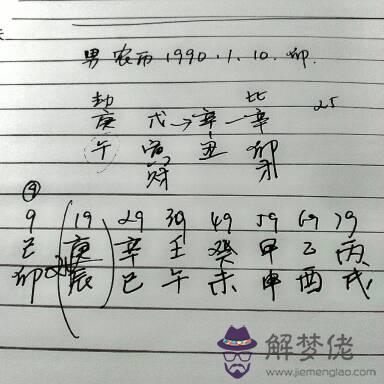 男 农历 1990.1.10. 卯.
劫 比
庚 戊→辛一辛 25
午 寅 丑 卯
财 才
④
9 19 29 39 49 59 69 79
己 庚 辛 壬 癸 甲 乙 丙
卯 辰 巳 午 未 申 酉 戌
解梦佬
www.jiemenglao.com